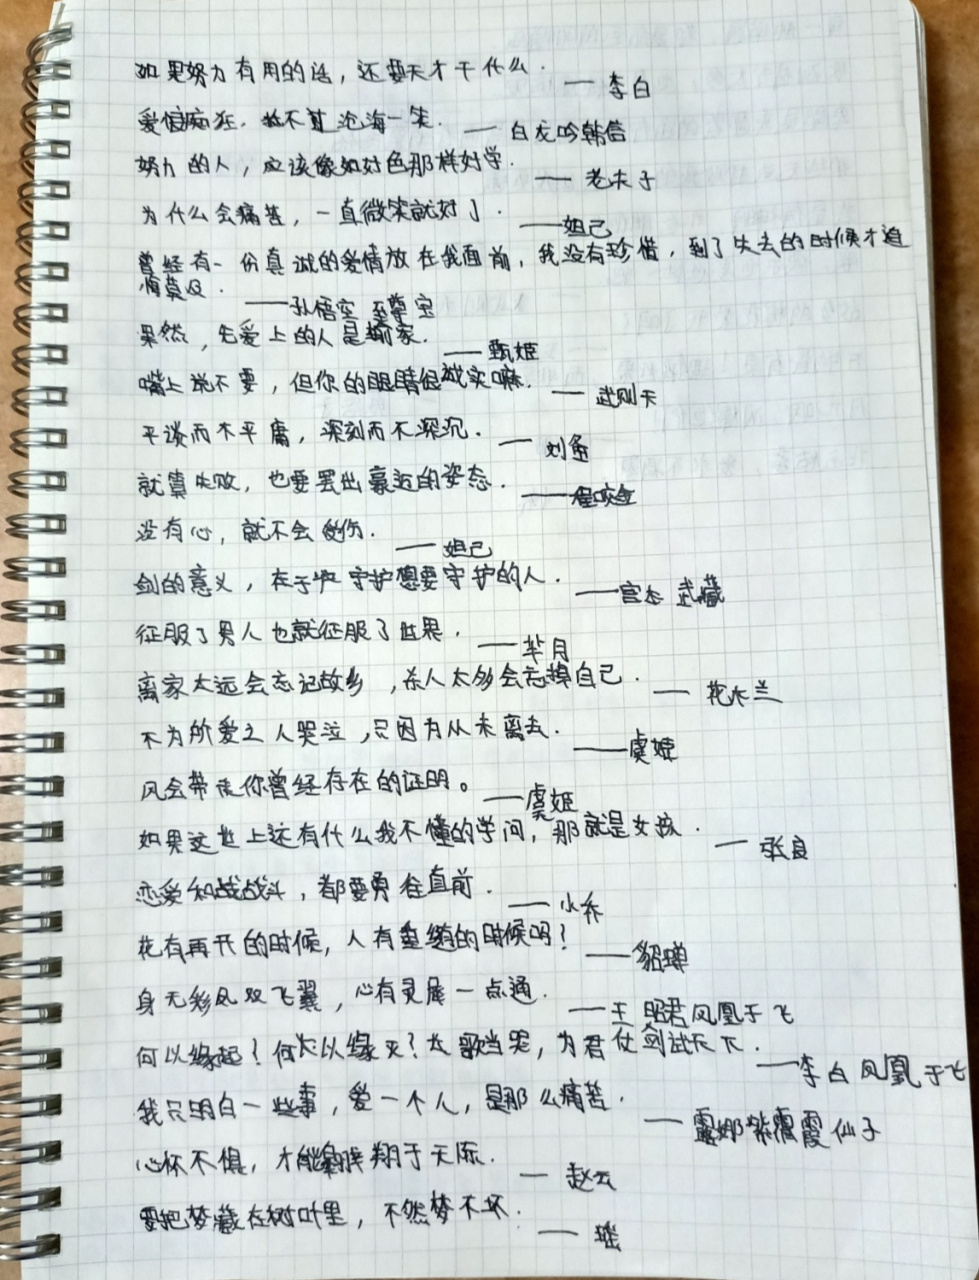 如果努力有用的话，还要天才干什么. ——李白
爱恨痴狂，不过沧海一笑. ——白龙吟韩信
努力的人，应该像如好色那样好学. ——老夫子
为什么会痛苦，一直微笑就好了. ——妲己
曾经有一份真诚的爱情放在我面前，我没有珍惜，到了失去的时候才追
悔莫及. ——孙悟空 至尊宝
果然，先爱上的人是输家. ——甄姬
嘴上说不要，但你的眼睛很诚实嘛. ——武则天
平淡而不平庸，深刻而不深沉. ——刘备
就算失败，也要摆出豪迈的姿态. ——程咬金
没有心，就不会受伤. ——妲己
剑的意义，在于守护想要守护的人. ——宫本 武藏
征服了男人也就征服了世界. ——芈月
离家太远会忘记故乡，杀人太多会忘掉自己. ——花木兰
不为所爱之人哭泣，只因为从未离去. ——虞姬
风会带走你曾经存在的证明。 ——虞姬
如果这世上还有什么我不懂的学问，那就是女孩. ——张良
恋爱和战斗，都要勇往直前. ——小乔
花有再开的时候，人有重逢的时候吗？ ——貂蝉
身无彩凤双飞翼，心有灵犀一点通. ——王昭君凤凰于飞
何以缘起？何以缘灭？长歌当哭，为君仗剑试天下. ——李白凤凰于飞
我只明白一些事，爱一个人，是那么痛苦. ——露娜紫霞仙子
心怀不惧，才能翱翔于天际. ——赵云
要把梦藏在树叶里，不然梦不坏. ——瑶